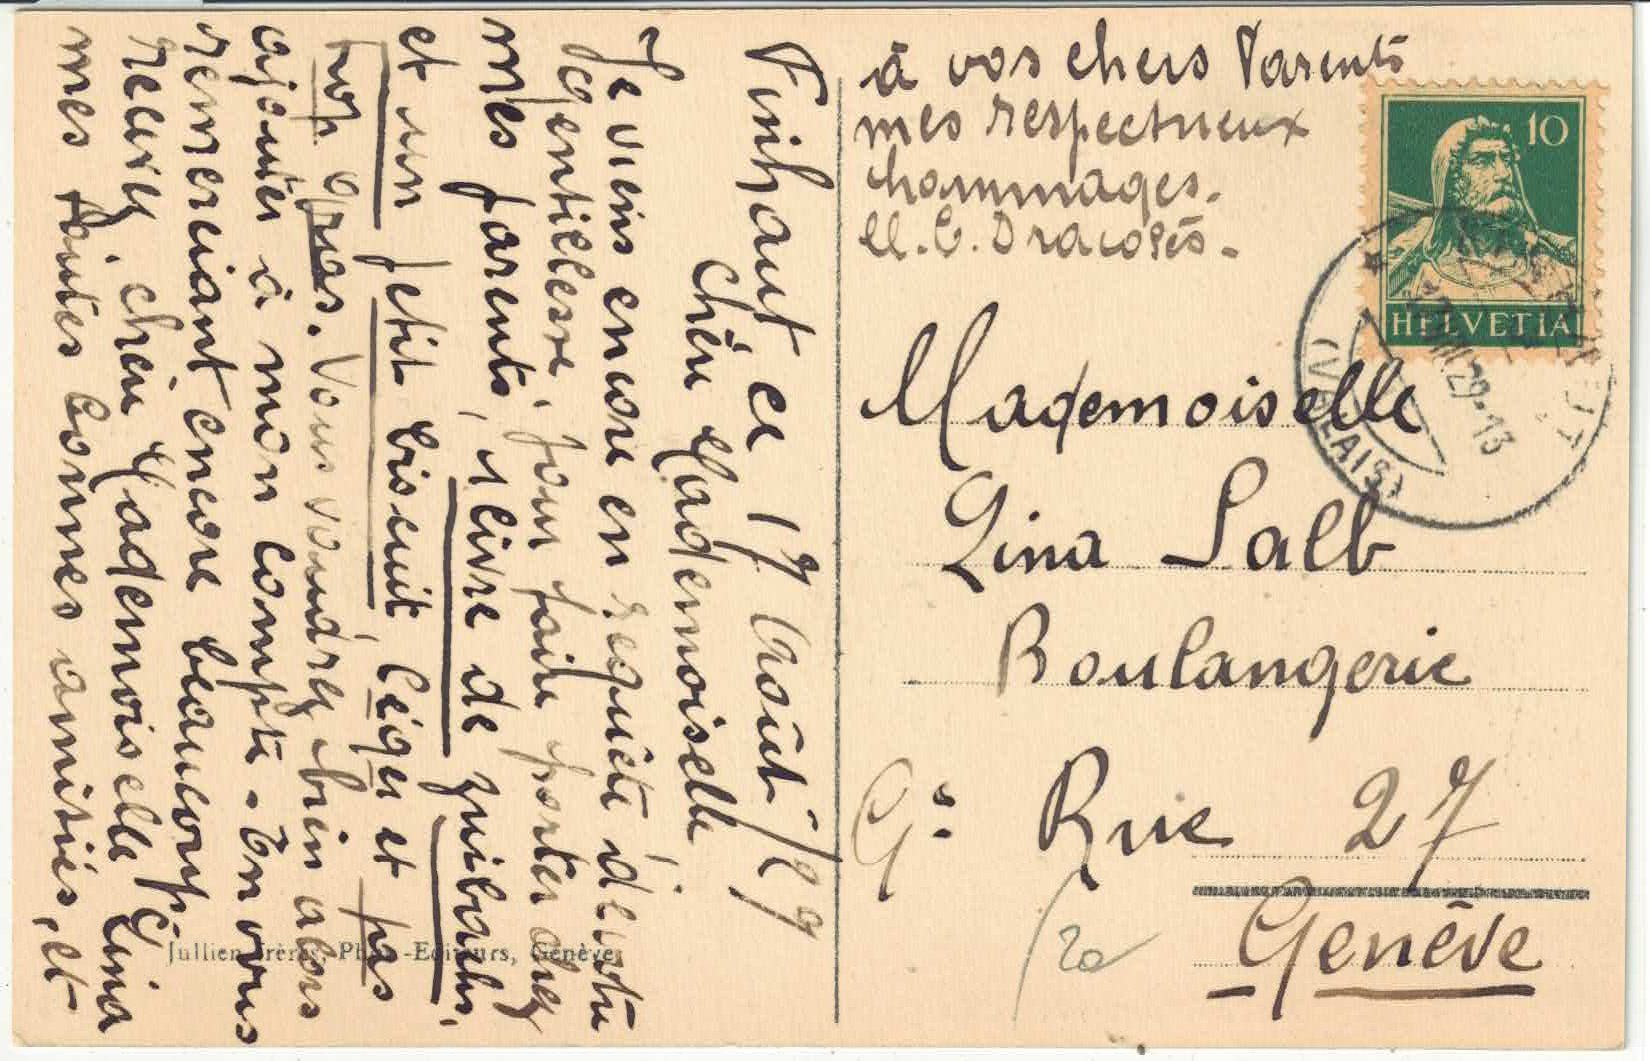 Finhaut ce 17 Août / 29
Chère Mademoiselle
Je viens encore en requête de votre
gentillesse, pour faire porter chez
mes parents, 1 livre de zwibachs,
et un petit biscuit léger et pas
trop gras. Vous voudrez bien alors
ajouter à mon compte. En vous
remerciant encore beaucoup,
recevez, chère Mademoiselle Lina
mes toutes bonnes amitiés, et
à vos chers Parents
mes respectueux
hommages.
Dracopés.
Mademoiselle
Lina Salb
Boulangerie
Gde Rue 27
Genève
20
10
HELVETIA
(VALAIS)
VIII 29-13
Jullien Frères, Phot.-Editeurs, Genève